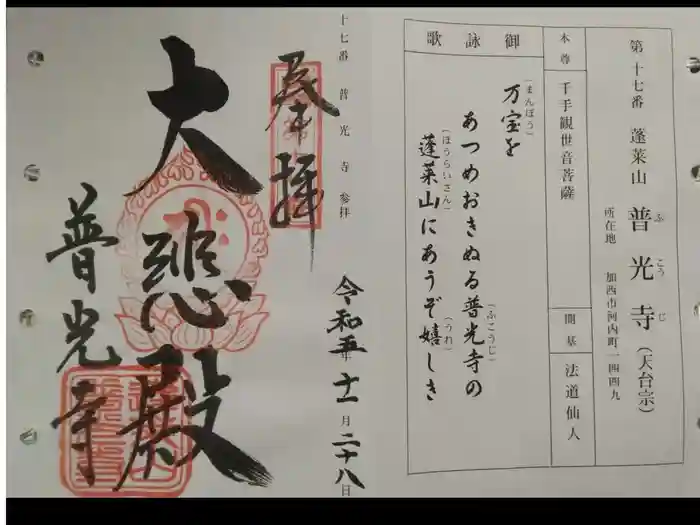 第十七番 蓬莱山 普光寺(天台宗)
ふ こう じ
所在地 加西市河内町一四四九
本尊 千手観世音菩薩 開基 法道仙人
御詠歌
万宝を
(まんぽう)
あつめおきぬる普光寺の
(ふこうじ)
蓬莱山にあうぞ嬉しき
(ほうらいさん) (うれ)
十七番 普光寺 参拝
令和五年十一月二十八日
奉拝
大悲殿
普光寺